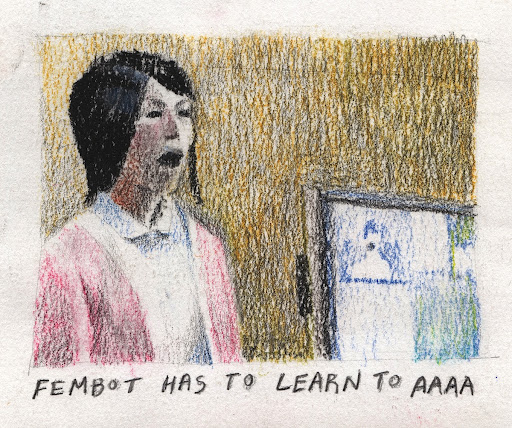 FEMBOT HAS TO LEARN TO AAAA